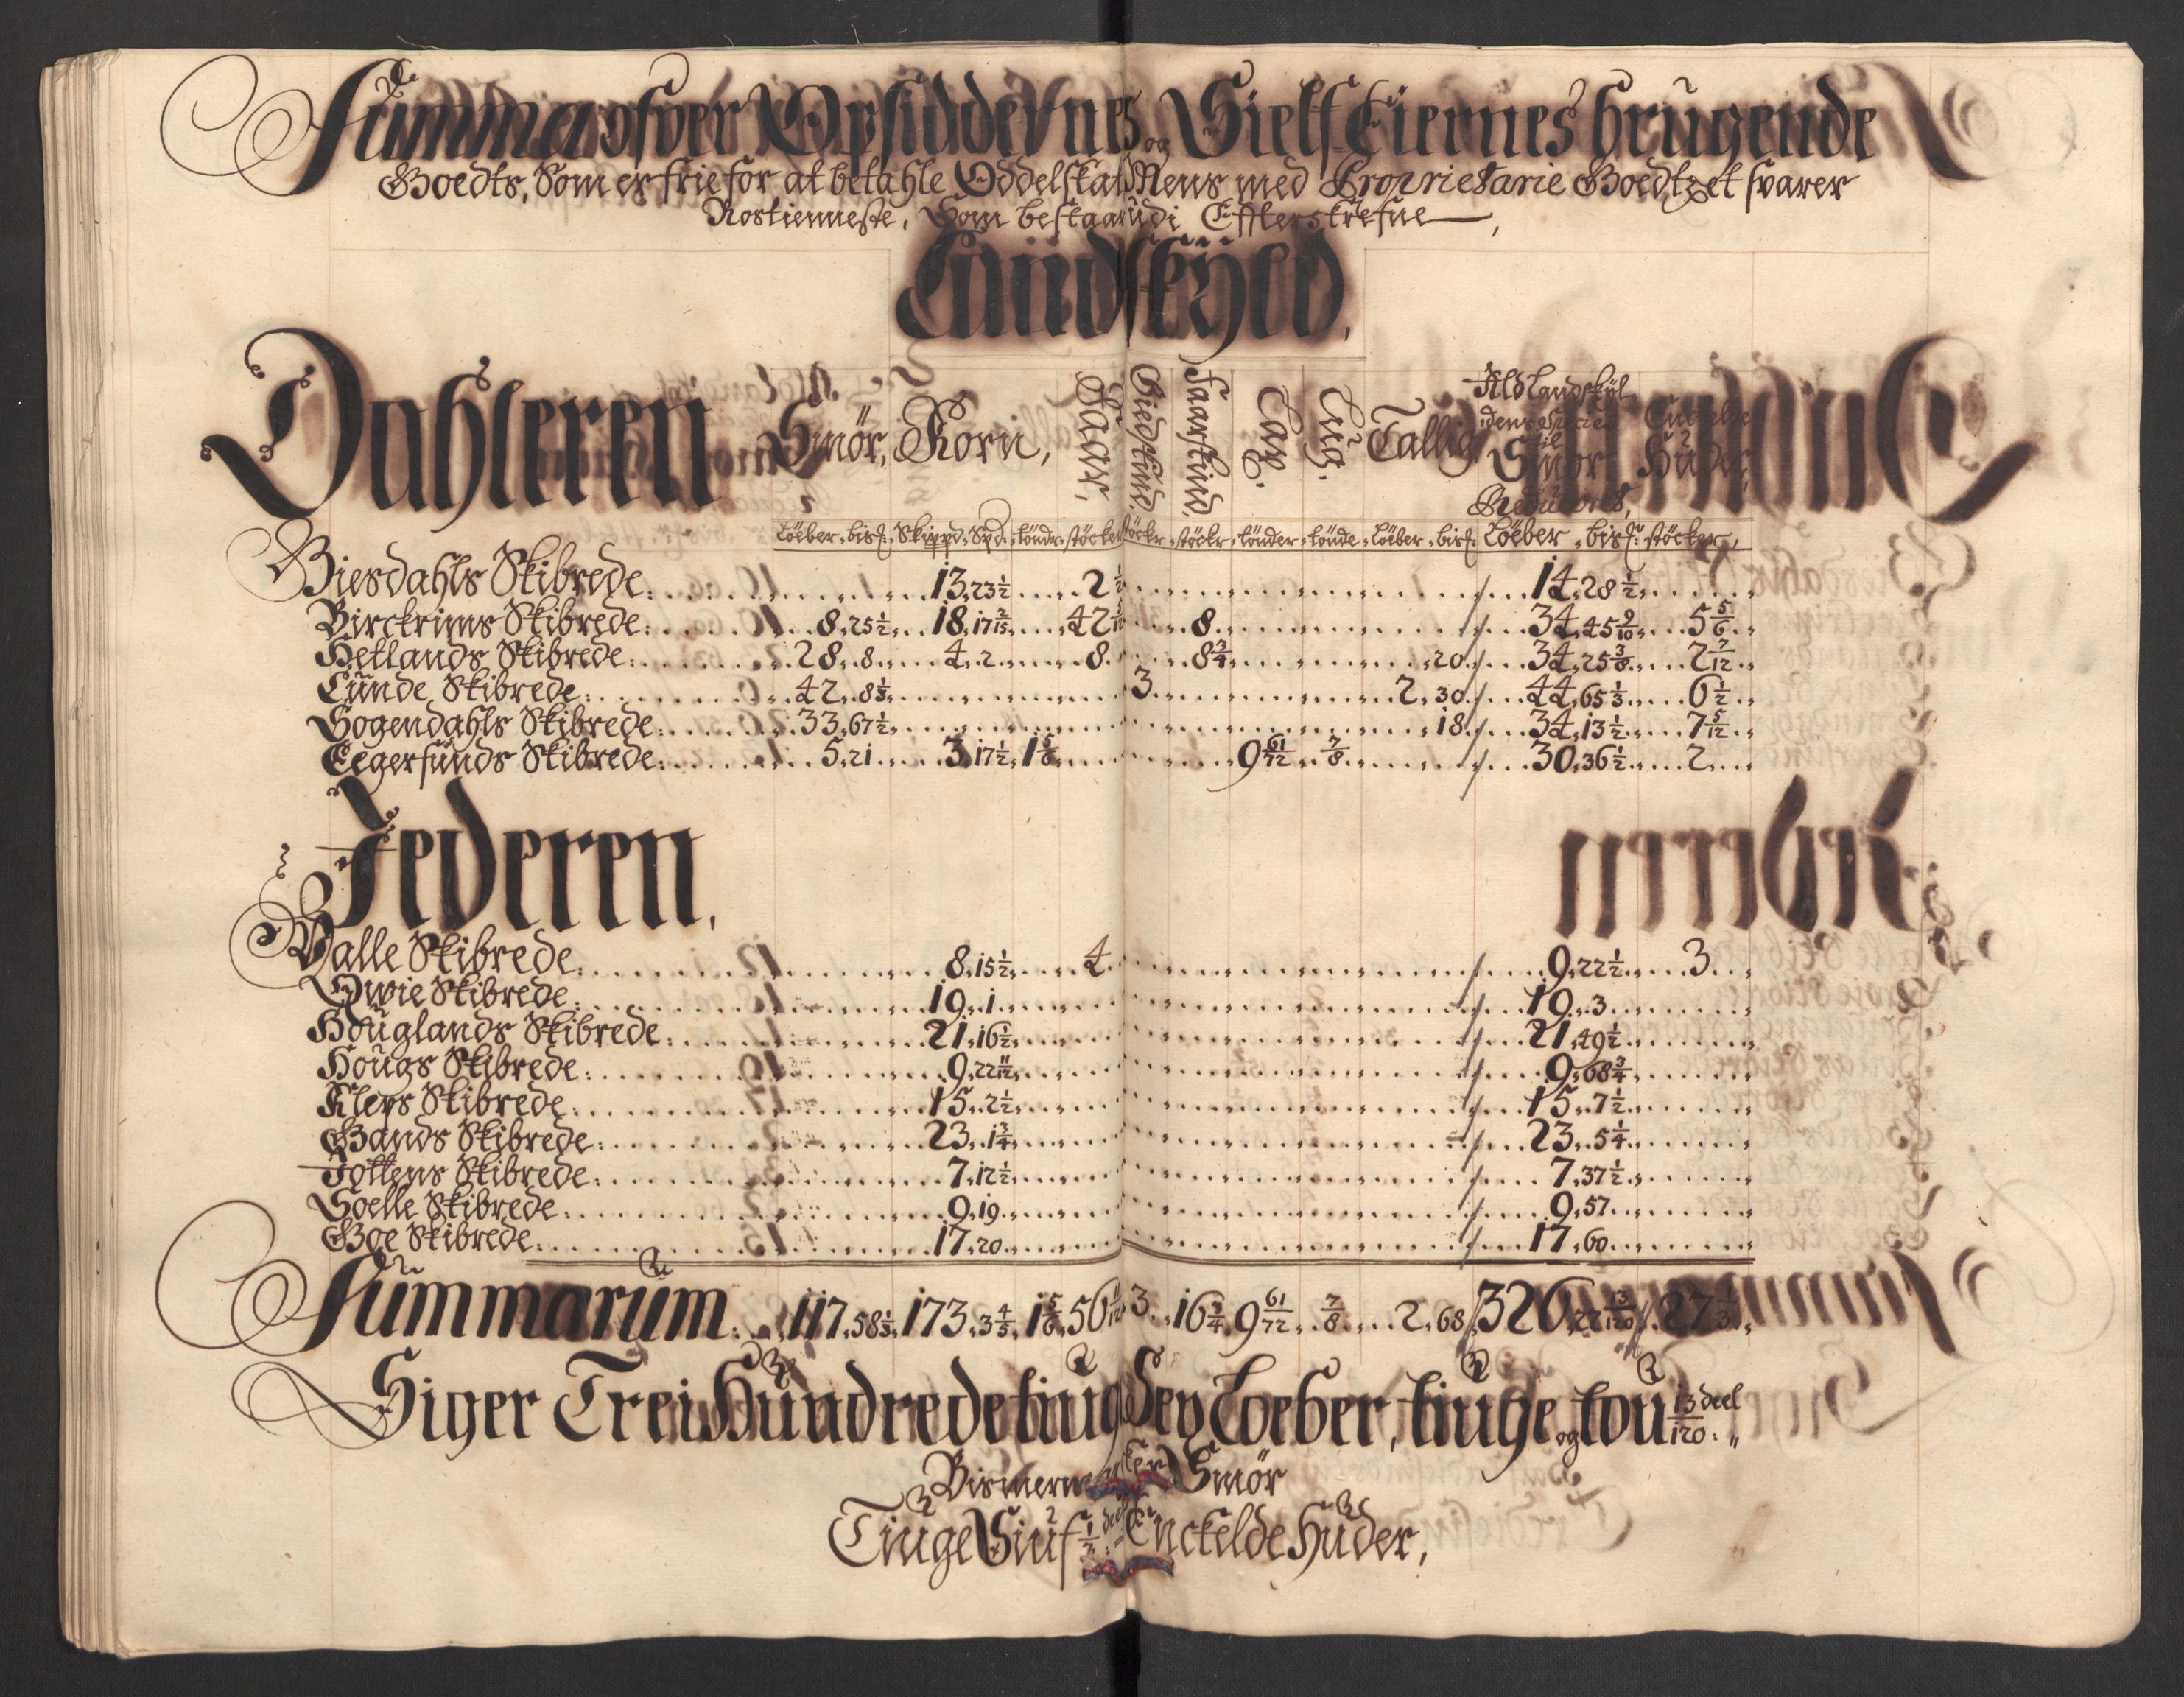 Summa ofver Opsiddernes og Sielf Eiernes brugende
Goedts, Som er frie for at betahle Oddelskat Mens med Proprietarie Goedtzet svarer
Rostienneste, Som bestaar udi Effterskrefne
Landskÿld,
Dahleren Smör, Korn, Saar, Giedskind, Faarskind, Lax. Laug. Tallig Ald Landskÿl dens Species til Smör Reduceres, Enckelte Huder,
Löeber. bisf: Skippd. Spd: tönder. stöcker stöckr. stöckr. tönder. tönde. Löeber. bisf: Löeber. bisf: stöcker,
Giesdahls Skibrede: 13. 23½ 2½ / 14. 28½
Birckrims Skibrede: 8. 25½ 18. 17 2/15 42 8 / 34. 45 9/10 5 5/6
Hetlands Skibrede: 28. 8 4. 2 8 8¾ 20 / 34. 25 3/8 2 7/12
Lunde Skibrede: 42. 8⅓ 3 2. 30 / 44. 65⅓ 6½
Sogendahls Skibrede: 33. 67½ 18 / 34. 13½ 7 5/12
Eegersunds Skibrede: 5. 21 3. 17½ 1 5/6 9 61/72 7/8 / 30. 36½ 2
Jederen,
Walle Skibrede: 8. 15½ 4 / 9. 22½ 3
Qwie Skibrede: 19. 1 / 19. 3
Houglands Skibrede: 21. 16½ / 21. 49½
Hougs Skibrede: 9. 22 11/12 / 9. 68¾
Kleps Skibrede: 15. 2½ / 15. 7½
Gands Skibrede: 23. 1¾ / 23. 5¼
Jottens Skibrede: 7. 12½ / 7. 37½
Soelle Skibrede: 9. 19 / 9. 57
Goe Skibrede: 17. 20 / 17. 60
Summarum: 117. 58⅓ 173. 3⅘ 1 5/6 56 3 16¾ 9 61/72 7/8 2. 68 / 326. 22 13/120 // 27⅓
Siger Trei Hundrede tiug Sex Loeber, tiuge og tou 13/120 deel
Bismermercker Smör
Tiuge Siuf ⅓ deel Enckelde Huder,